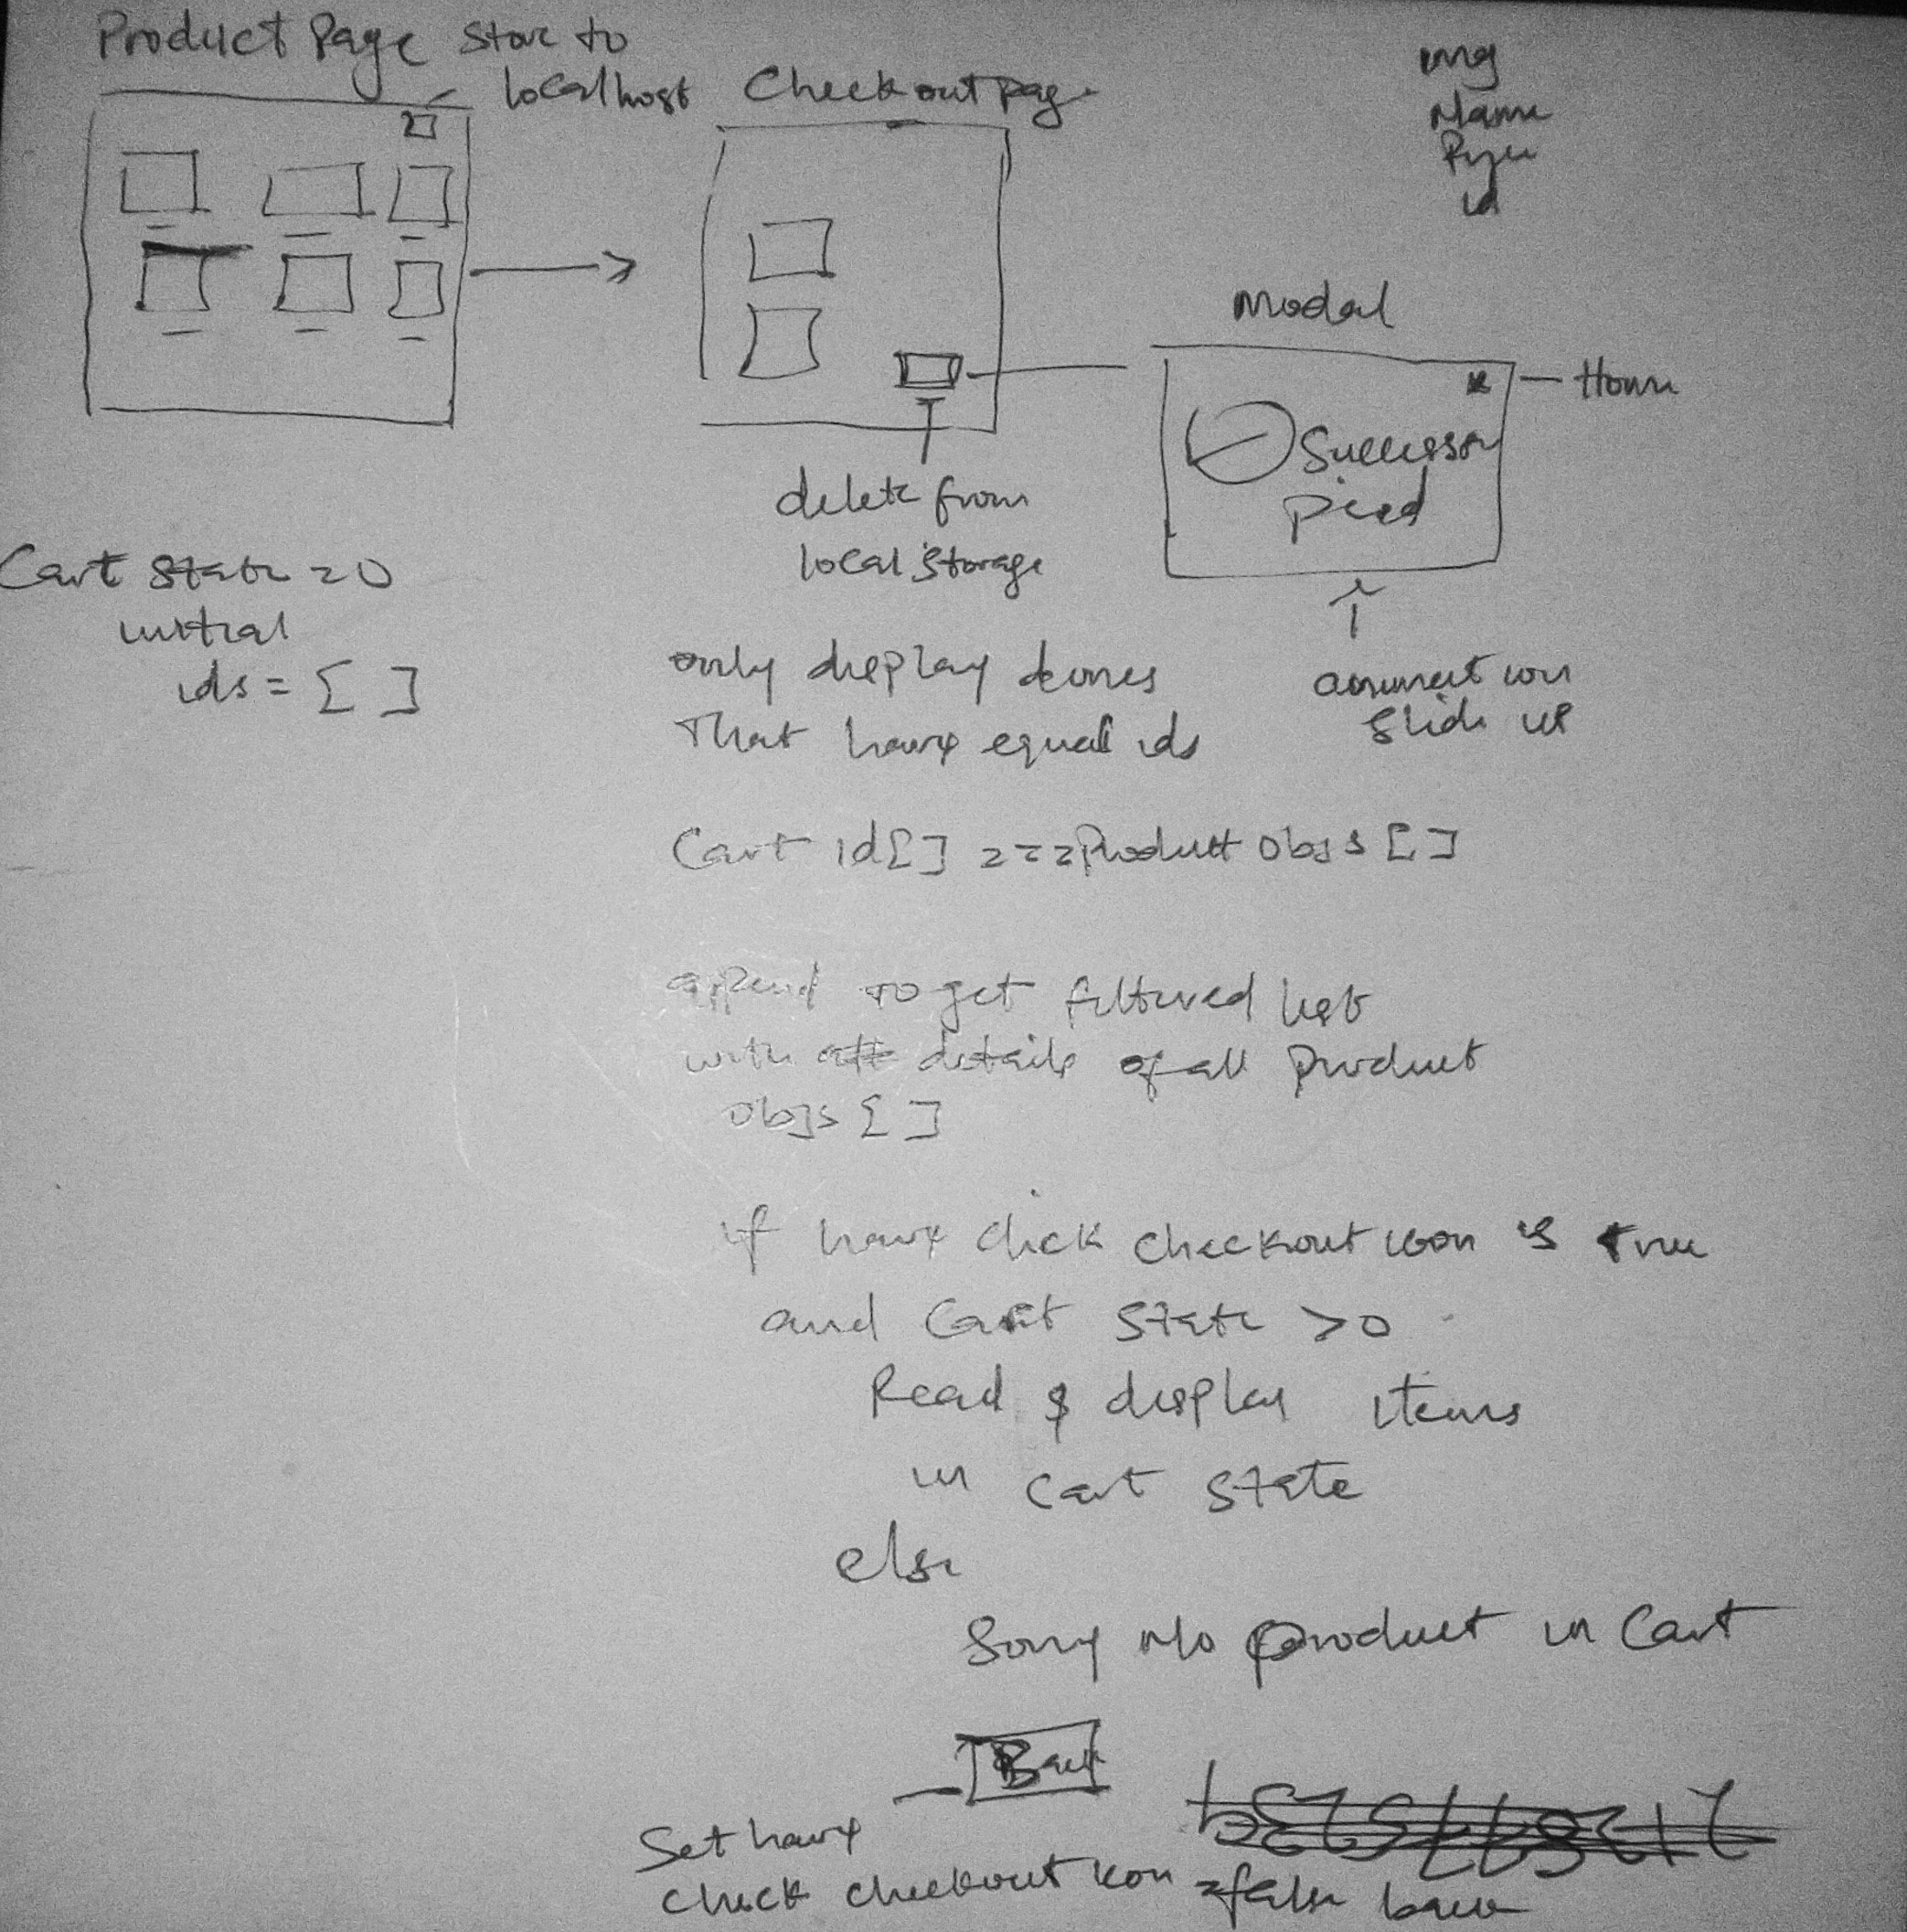 Product Page
Store to
localhost
Checkout Page
img
Name
id
Modal
Home
delete from
local Storage
Cart State = 0
initial
ids = [ ]
only display
That have equal ids
slide up
Cart id[] === Product Objs []
append to get filtered list
with details of all product
Objs [ ]
if have click checkout icon is true
and Cart State > 0
Read & display items
in Cart State
else
Sorry No product in Cart
Back
Set have
Check checkout icon = false back